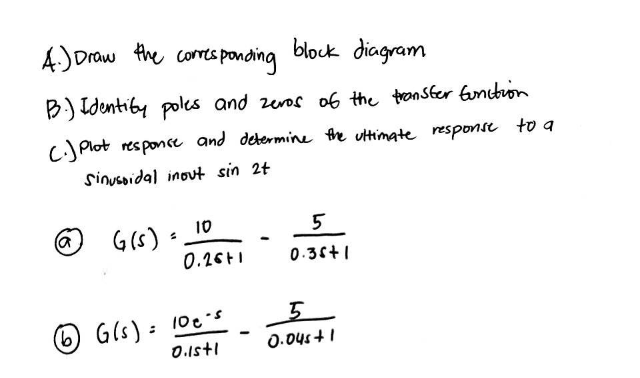 A.) Draw the corresponding block diagram
B.) Identify poles and zeros of the transfer function
C.) Plot response and determine the ultimate response to a
sinusoidal inout sin 2t
(a) G(s) = 10 / 0.2s+1 - 5 / 0.3s+1
(b) G(s) = 10e^-s / 0.1s+1 - 5 / 0.04s+1